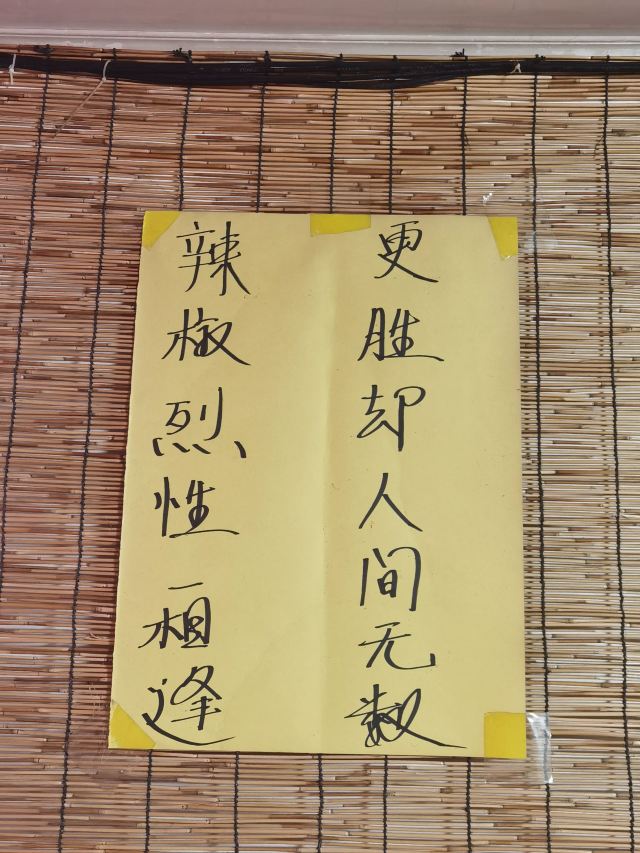 辣椒烈性一相逢
更胜却人间无数